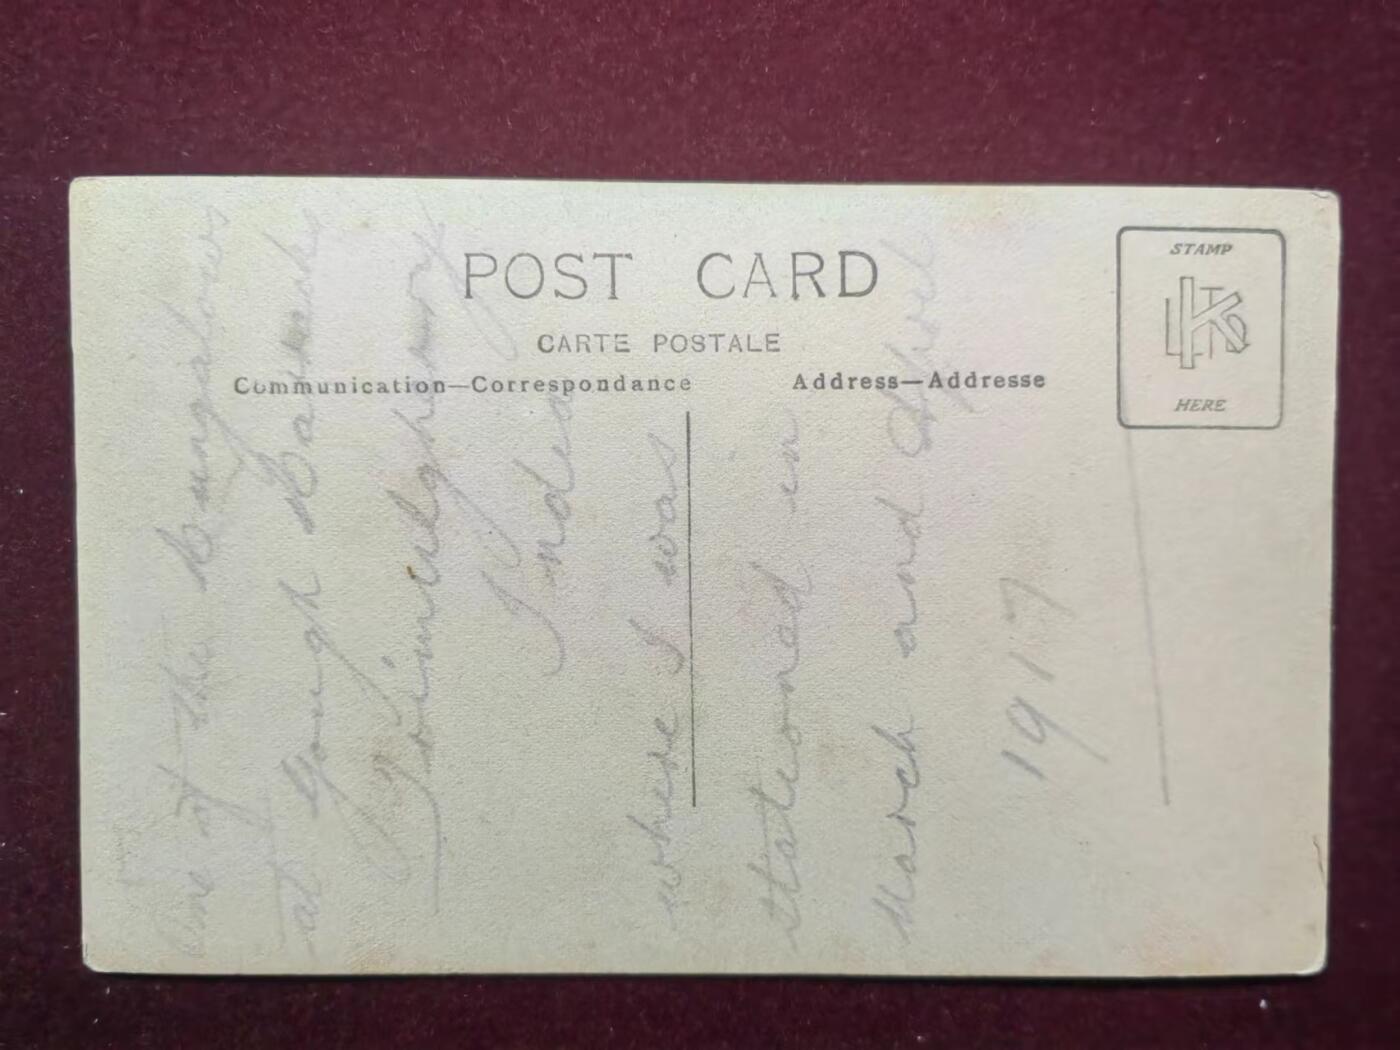 POST CARD
CARTE POSTALE
Communication—Correspondance
Address—Addresse
STAMP
HERE
One of the bungalows
at Gough Barracks
Trimulgherry
India
where I was
stationed in
March and April
1917